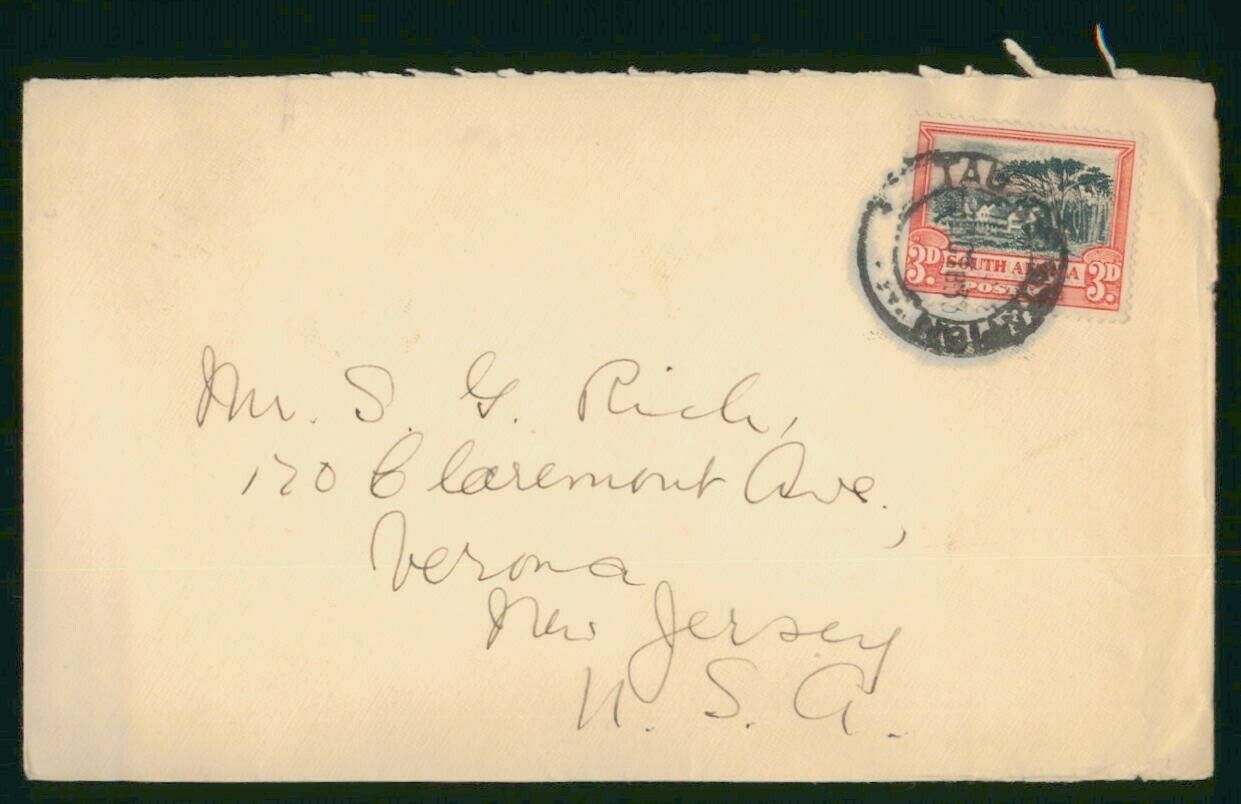 TAU
3D. SOUTH AFRICA 3D.
POSTAGE
Mr. S. G. Rich,
120 Claremont Ave.,
Verona
New Jersey
U. S. A.